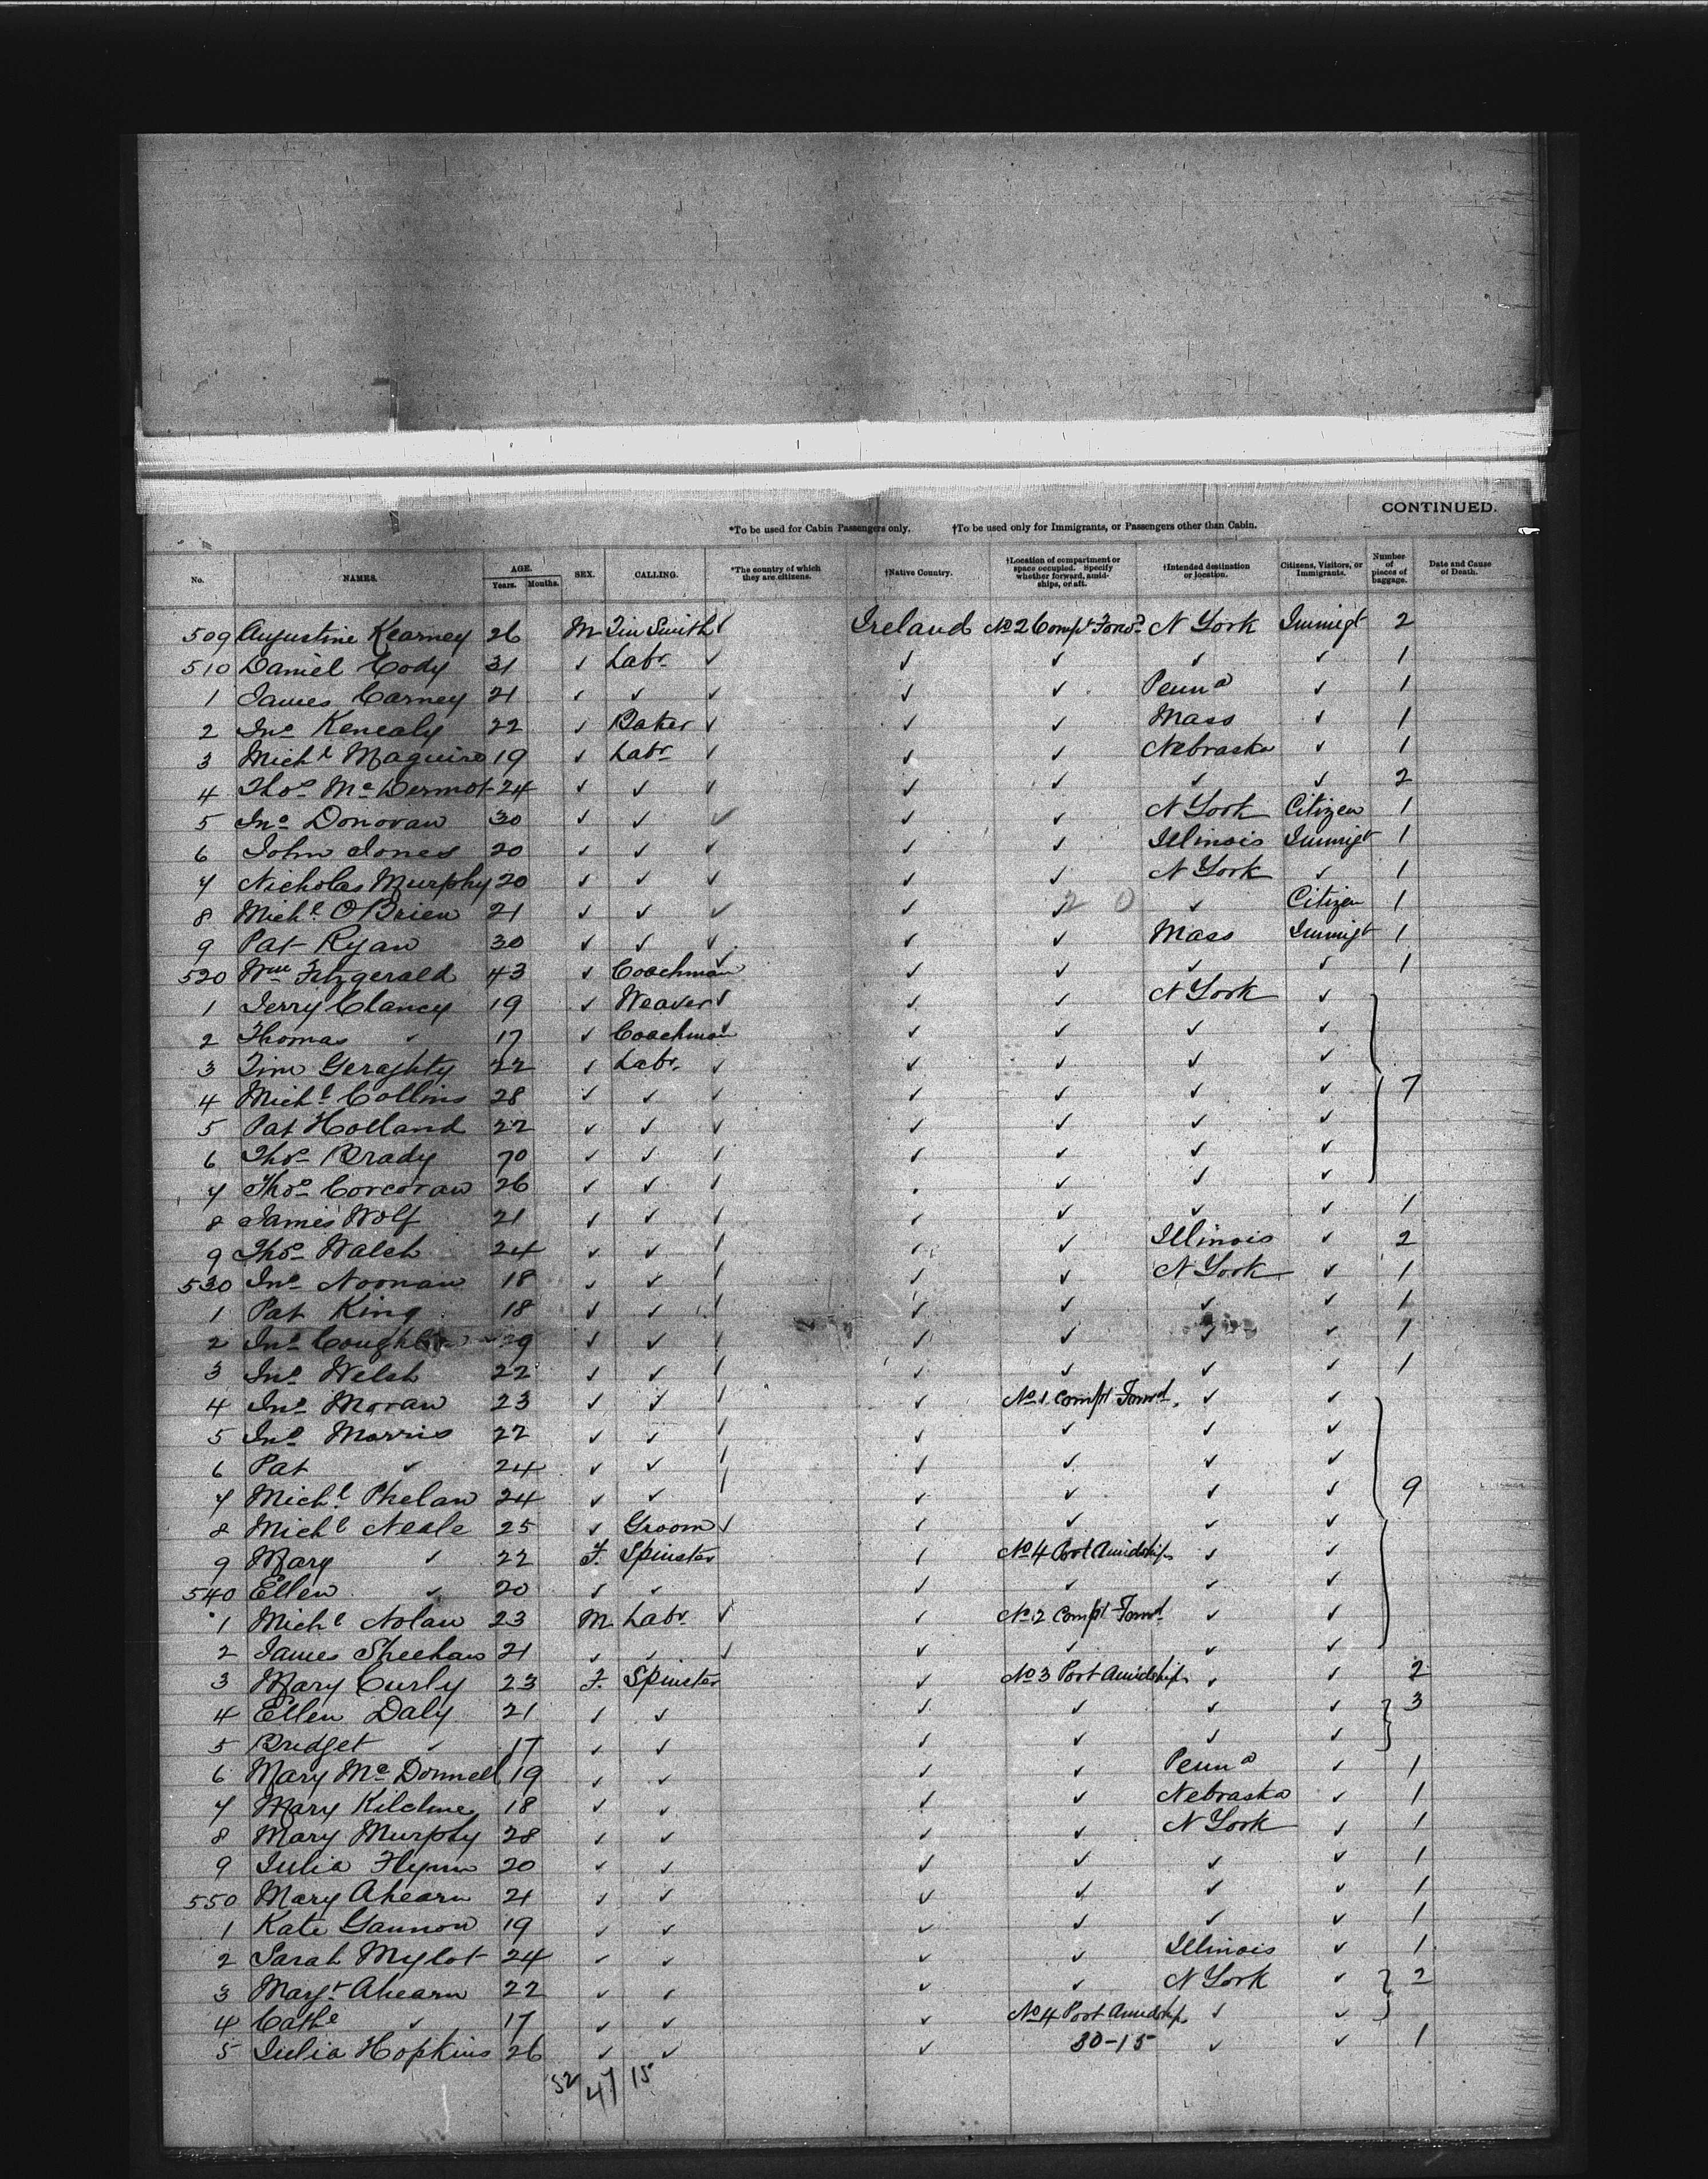 CONTINUED.
*To be used for Cabin Passengers only. †To be used only for Immigrants, or Passengers other than Cabin.
No. NAMES. AGE. Years. Months. SEX. CALLING. *The country of which they are citizens. †Native Country. †Location of compartment or space occupied. Specify whether forward, amidships, or aft. †Intended destination or location. Citizens, Visitors, or Immigrants. Number of pieces of baggage. Date and Cause of Death.
509 Augustine Kearney 26 M Tin Smith ✓ Ireland No 2 Compt Forwd N York Immigt 2
510 Daniel Cody 31 ✓ Labr ✓ ✓ ✓ ✓ ✓ 1
1 James Carney 21 ✓ ✓ ✓ ✓ ✓ Penna ✓ 1
2 Jno Kenealy 22 ✓ Baker ✓ ✓ ✓ Mass ✓ 1
3 Michl Maguire 19 ✓ Labr ✓ ✓ ✓ Nebraska ✓ 1
4 Thos McDermot 24 ✓ ✓ ✓ ✓ ✓ ✓ ✓ 2
5 Jno Donovan 30 ✓ ✓ ✓ ✓ ✓ N York Citizen 1
6 John Jones 20 ✓ ✓ ✓ ✓ ✓ Illinois Immigt 1
7 Nicholas Murphy 20 ✓ ✓ ✓ ✓ ✓ N York ✓ 1
8 Michl O'Brien 21 ✓ ✓ ✓ ✓ ✓ 20 ✓ Citizen 1
9 Pat Ryan 30 ✓ ✓ ✓ ✓ ✓ Mass Immigt 1
520 Wm Fitzgerald 43 ✓ Coachman ✓ ✓ ✓ ✓ ✓ 1
1 Jerry Clancy 19 ✓ Weaver ✓ ✓ ✓ N York ✓
2 Thomas ✓ 17 ✓ Coachman ✓ ✓ ✓ ✓ ✓
3 Tim Geraghty 22 ✓ Labr. ✓ ✓ ✓ ✓ ✓
4 Michl Collins 28 ✓ ✓ ✓ ✓ ✓ ✓ ✓ 7
5 Pat Holland 22 ✓ ✓ ✓ ✓ ✓ ✓ ✓
6 Thos Brady 70 ✓ ✓ ✓ ✓ ✓ ✓ ✓
7 Thos Corcoran 26 ✓ ✓ ✓ ✓ ✓ ✓ ✓
8 James Wolf 21 ✓ ✓ ✓ ✓ ✓ ✓ ✓ 1
9 Thos Walsh 24 ✓ ✓ ✓ ✓ ✓ Illinois ✓ 2
530 Jno Noonan 18 ✓ ✓ ✓ ✓ ✓ N York ✓ 1
1 Pat King 18 ✓ ✓ ✓ ✓ ✓ ✓ ✓ 1
2 Jno 29 ✓ ✓ ✓ ✓ ✓ ✓ ✓ 1
3 Jno Welsh 22 ✓ ✓ ✓ ✓ ✓ ✓ ✓ 1
4 Jno Moran 23 ✓ ✓ ✓ ✓ No 1 Compt Forwd. ✓ ✓
5 Jno Morris 22 ✓ ✓ ✓ ✓ ✓ ✓ ✓
6 Pat ✓ 24 ✓ ✓ ✓ ✓ ✓ ✓ ✓
7 Michl Phelan 24 ✓ ✓ ✓ ✓ ✓ ✓ ✓ 9
8 Michl Neale 25 ✓ Groom ✓ ✓ ✓ ✓ ✓
9 Mary ✓ 22 F. Spinster ✓ No 4 Port Amidships ✓ ✓
540 Ellen ✓ 20 ✓ ✓ ✓ ✓ ✓ ✓
1 Michl Nolan 23 M Labr ✓ ✓ No 2 Compt Forwd ✓ ✓
2 James Sheehan 21 ✓ ✓ ✓ ✓ ✓ ✓ ✓
3 Mary Curly 23 F. Spinster ✓ No 3 Port Amidships ✓ ✓ 2
4 Ellen Daly 21 ✓ ✓ ✓ ✓ ✓ ✓ 3
5 Bridget ✓ 17 ✓ ✓ ✓ ✓ ✓ ✓
6 Mary McDonnell 19 ✓ ✓ ✓ ✓ Penna ✓ 1
7 Mary Kilcline 18 ✓ ✓ ✓ ✓ Nebraska ✓ 1
8 Mary Murphy 28 ✓ ✓ ✓ ✓ N York ✓ 1
9 Julia Flynn 20 ✓ ✓ ✓ ✓ ✓ ✓ 1
550 Mary Ahearn 21 ✓ ✓ ✓ ✓ ✓ ✓ 1
1 Kate Gannon 19 ✓ ✓ ✓ ✓ ✓ ✓ 1
2 Sarah Mylot 24 ✓ ✓ ✓ ✓ Illinois ✓ 1
3 Margt Ahearn 22 ✓ ✓ ✓ ✓ N York ✓ 2
4 Cathe ✓ 17 ✓ ✓ ✓ No 4 Port Amidship ✓ ✓
5 Julia Hopkins 26 ✓ ✓ ✓ 30-15 ✓ ✓ 1
52/47/15